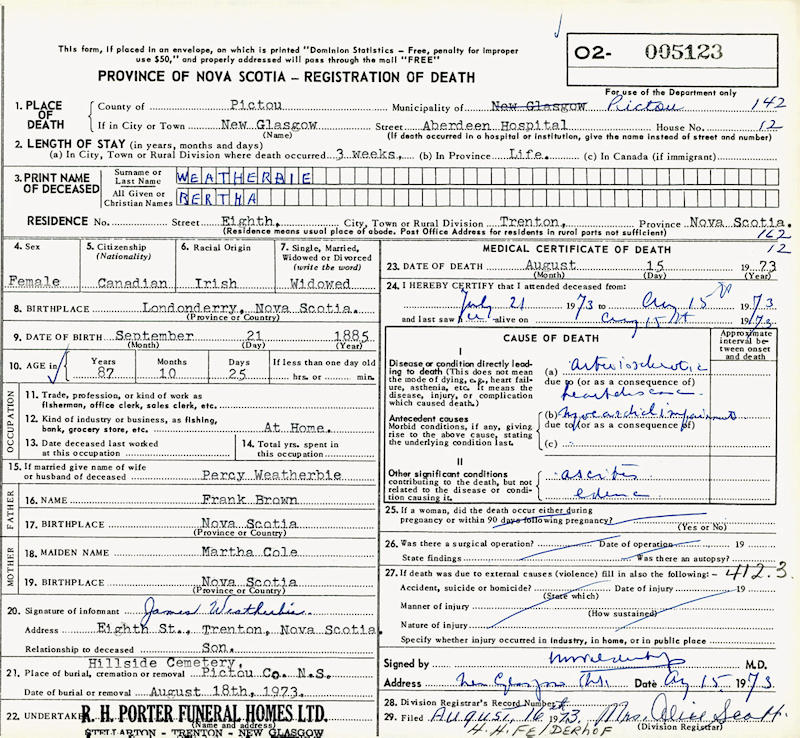 This form, if placed in an envelope, on which is printed "Dominion Statistics – Free, penalty for improper
use $50," and properly addressed will pass through the mail "FREE"
O2- 005123
PROVINCE OF NOVA SCOTIA – REGISTRATION OF DEATH
For use of the Department only
1. PLACE OF DEATH
County of Pictou Municipality of New Glasgow Pictou 142
If in City or Town New Glasgow Street Aberdeen Hospital House No. 12
(Name) (If death occurred in a hospital or institution, give the name instead of street and number)
2. LENGTH OF STAY (in years, months and days)
(a) In City, Town or Rural Division where death occurred 3 weeks, (b) In Province Life. (c) In Canada (if immigrant)
3. PRINT NAME OF DECEASED
Surname or Last Name WEATHERBIE
All Given or Christian Names BERTHA
RESIDENCE No. Street Eighth, City, Town or Rural Division Trenton, Province Nova Scotia.
(Residence means usual place of abode. Post Office Address for residents in rural parts not sufficient) 162
12
4. Sex
Female
5. Citizenship
(Nationality)
Canadian
6. Racial Origin
Irish
7. Single, Married,
Widowed or Divorced
(write the word)
Widowed
8. BIRTHPLACE Londonderry, Nova Scotia.
(Province or Country)
9. DATE OF BIRTH September 21 1885
(Month) (Day) (Year)
10. AGE in Years Months Days If less than one day old
87 10 25 hrs. or min.
OCCUPATION
11. Trade, profession, or kind of work as
fisherman, office clerk, sales clerk, etc.
12. Kind of industry or business, as fishing,
bank, grocery store, etc. At Home.
13. Date deceased last worked
at this occupation
14. Total yrs. spent in
this occupation
15. If married give name of wife
or husband of deceased Percy Weatherbie
FATHER
16. NAME Frank Brown
17. BIRTHPLACE Nova Scotia
(Province or Country)
MOTHER
18. MAIDEN NAME Martha Cole
19. BIRTHPLACE Nova Scotia
(Province or Country)
20. Signature of informant James Weatherbie
Address Eighth St., Trenton, Nova Scotia.
Relationship to deceased Son.
Hillside Cemetery,
21. Place of burial, cremation or removal Pictou Co. N.S.
Date of burial or removal August 18th, 1973.
22. UNDERTAKER R. H. PORTER FUNERAL HOMES LTD.
(Name and address)
STELLARTON - TRENTON - NEW GLASGOW
MEDICAL CERTIFICATE OF DEATH
23. DATE OF DEATH August 15 1973
(Month) (Day) (Year)
24. I HEREBY CERTIFY that I attended deceased from:
July 21 1973 to Aug 15 1973
and last saw her alive on Aug 15th 1973
CAUSE OF DEATH
Approximate
interval be-
tween onset
and death
I
Disease or condition directly lead-
ing to death (This does not mean
the mode of dying, e.g., heart fail-
ure, asthenia, etc. It means the
disease, injury, or complication
which caused death.)
(a) arteriosclerotic
due to (or as a consequence of)
heart disease
Antecedent causes
Morbid conditions, if any, giving
rise to the above cause, stating
the underlying condition last.
(b) myocardial impairment
due to (or as a consequence of)
(c)
II
Other significant conditions
contributing to the death, but not
related to the disease or condi-
tion causing it.
ascites
edema
25. If a woman, did the death occur either during
pregnancy or within 90 days following pregnancy?
(Yes or No)
26. Was there a surgical operation? Date of operation 19
State findings Was there an autopsy?
27. If death was due to external causes (violence) fill in also the following:– 412.3
Accident, suicide or homicide? Date of injury 19
(State which)
Manner of injury
(How sustained)
Nature of injury
Specify whether injury occurred in industry, in home, or in public place
Signed by M.D.
Address New Glasgow Date Aug 15 1973
28. Division Registrar's Record Number
29. Filed August 16th 1973 Mrs. Alice Scott
(Division Registrar)